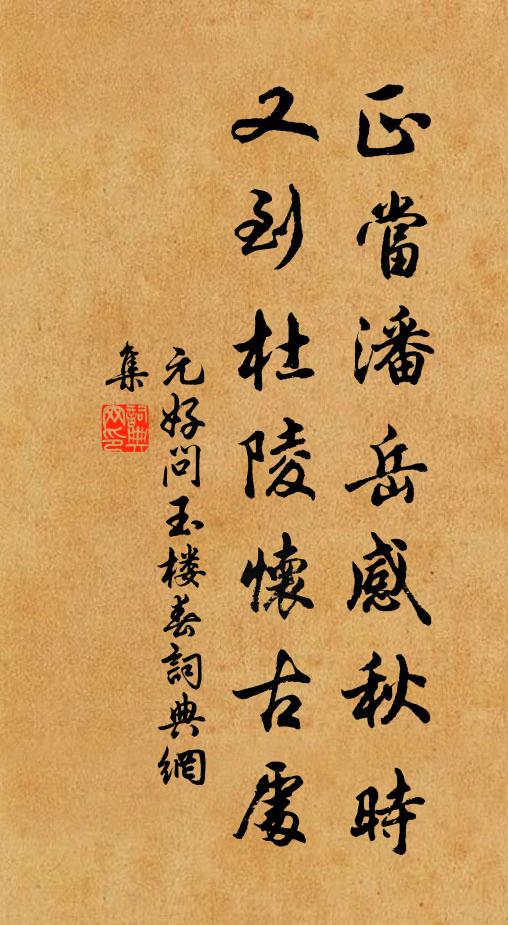 正當潘岳感秋時
又到杜陵懷古處
元好問玉楼春詞典網
集
詞典
网印